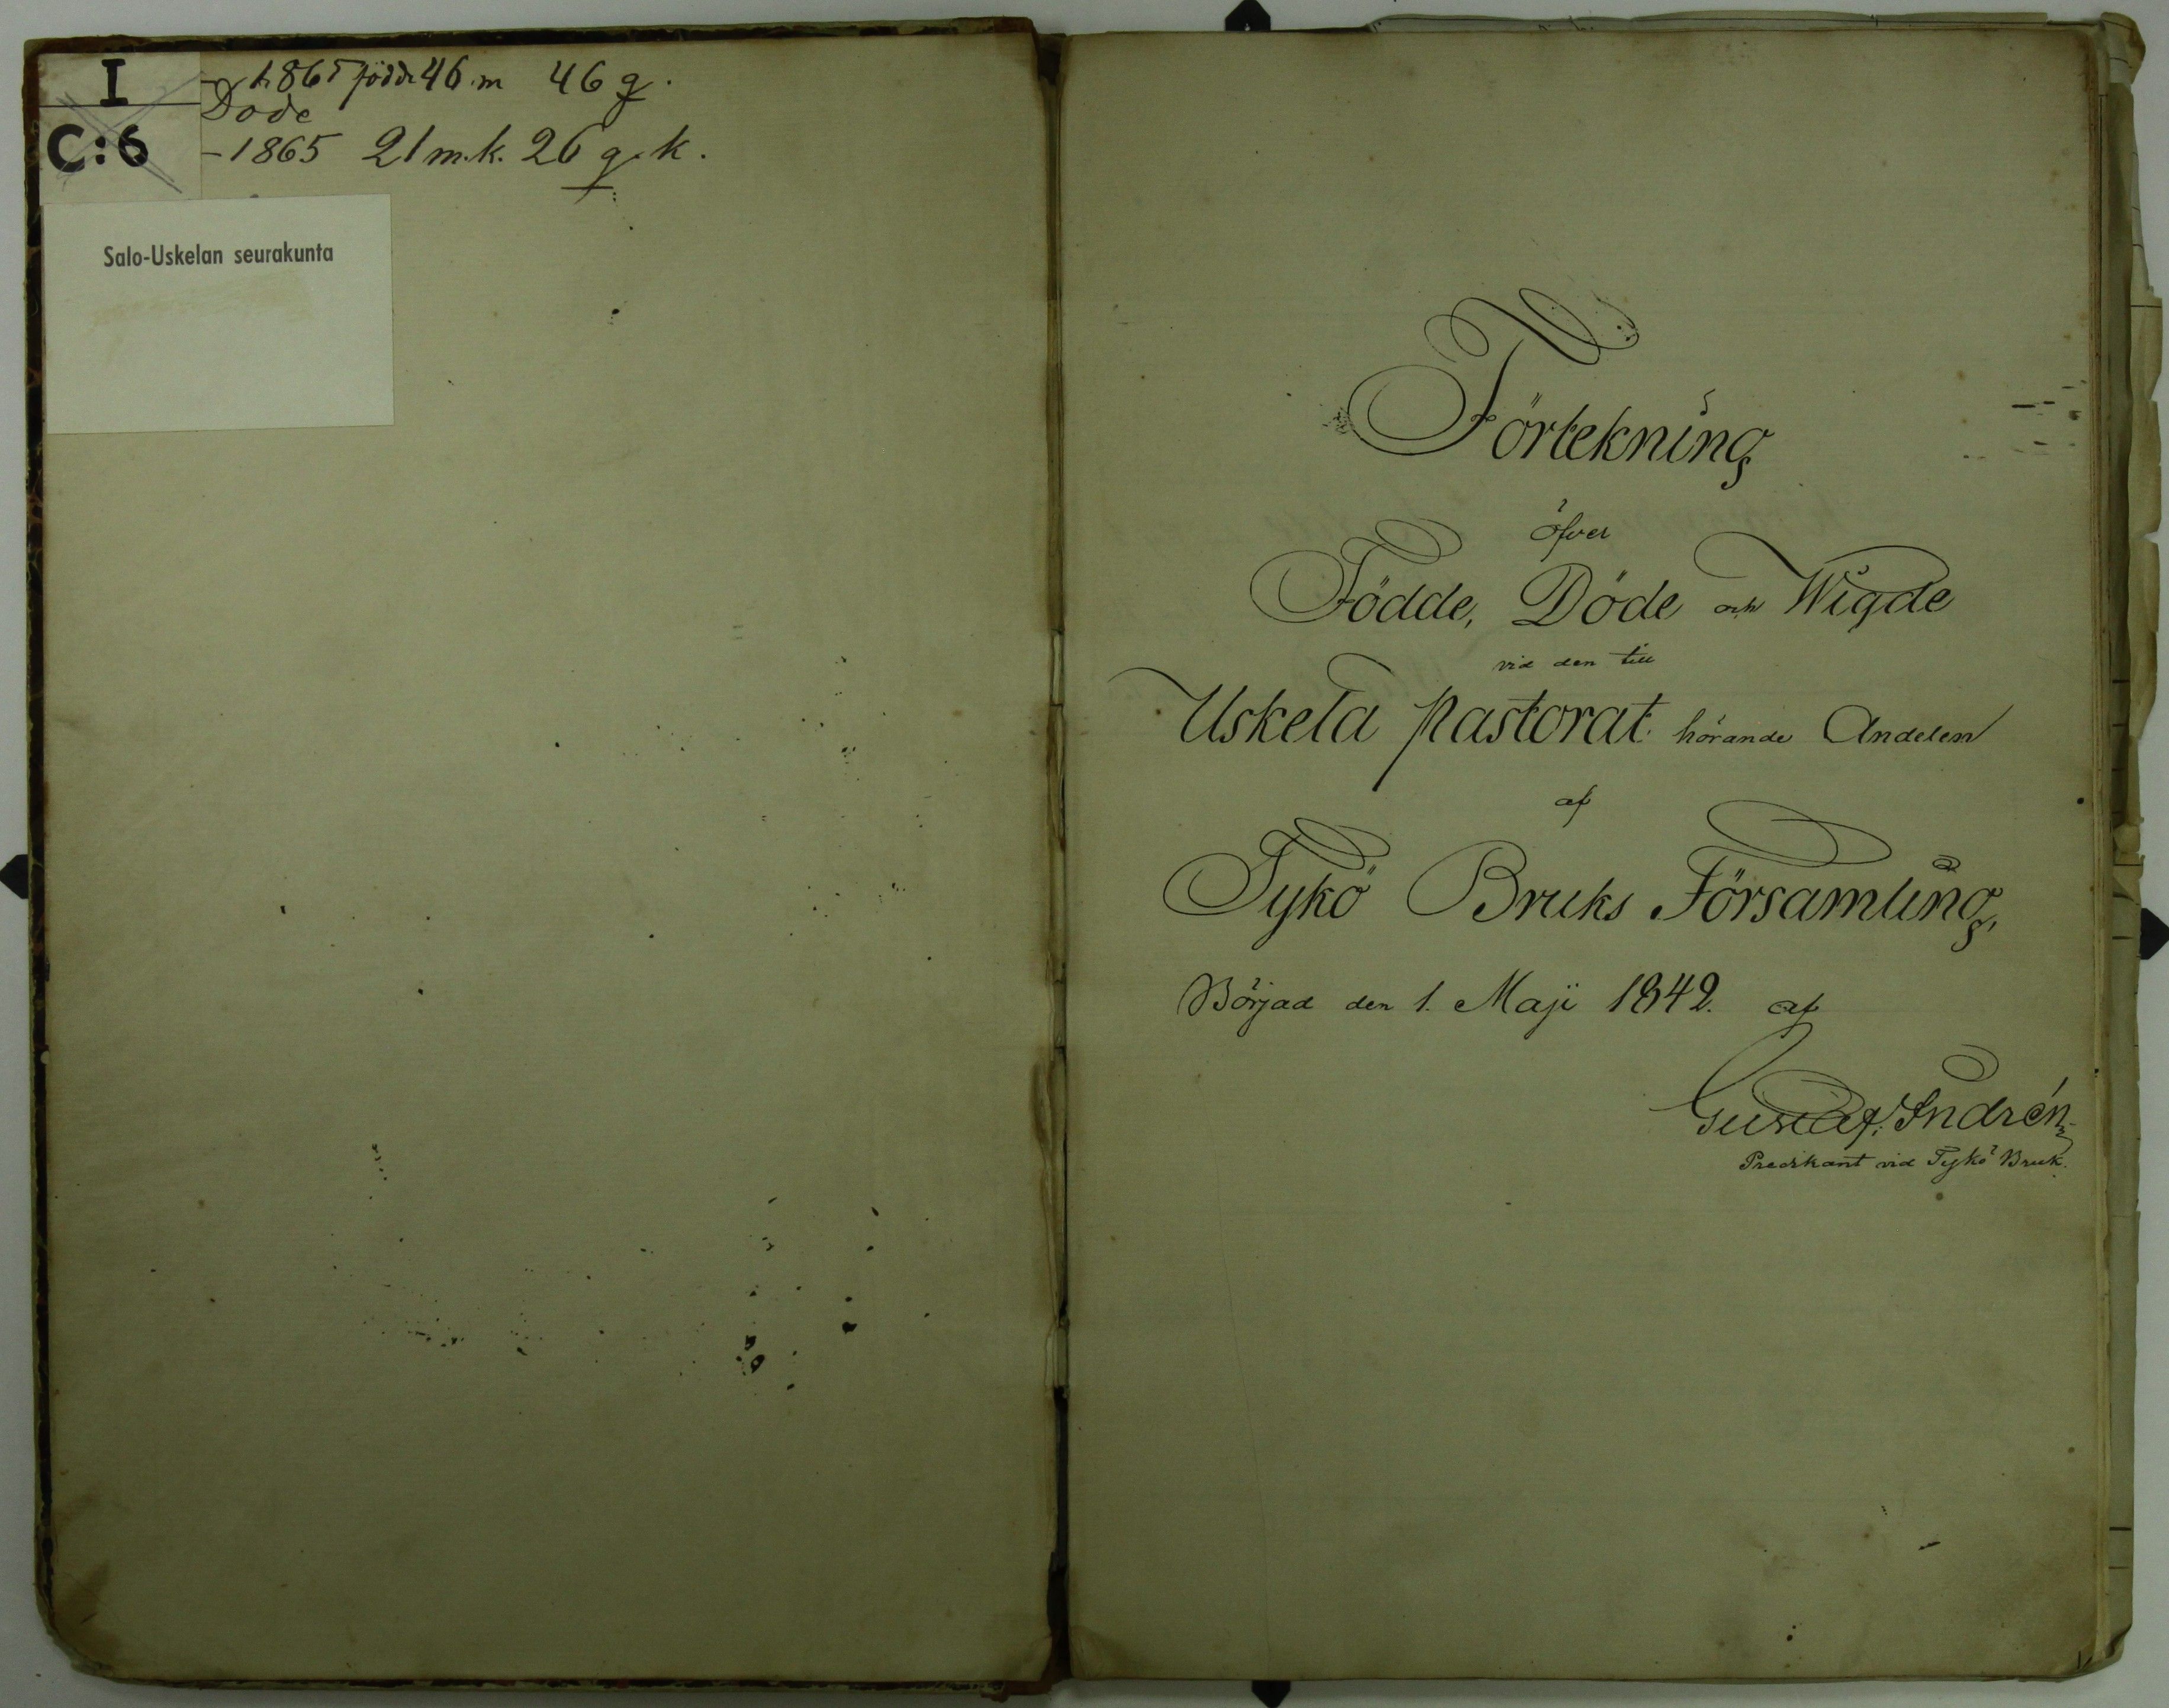 I
C:6
- 1865 födde 46 m 46 q.
Döde
- 1865 21 m.k. 26 q.k.
Salo-Uskelan seurakunta
Förtekning
öfver
Födde, Döde och Wigde
vid den till
Uskela pastorat hörande Andelen
af
Tykö Bruks Församling,
Börjad den 1. Maji 1842. af
Gustaf Andrén
Predikant vid Tykö Bruk.